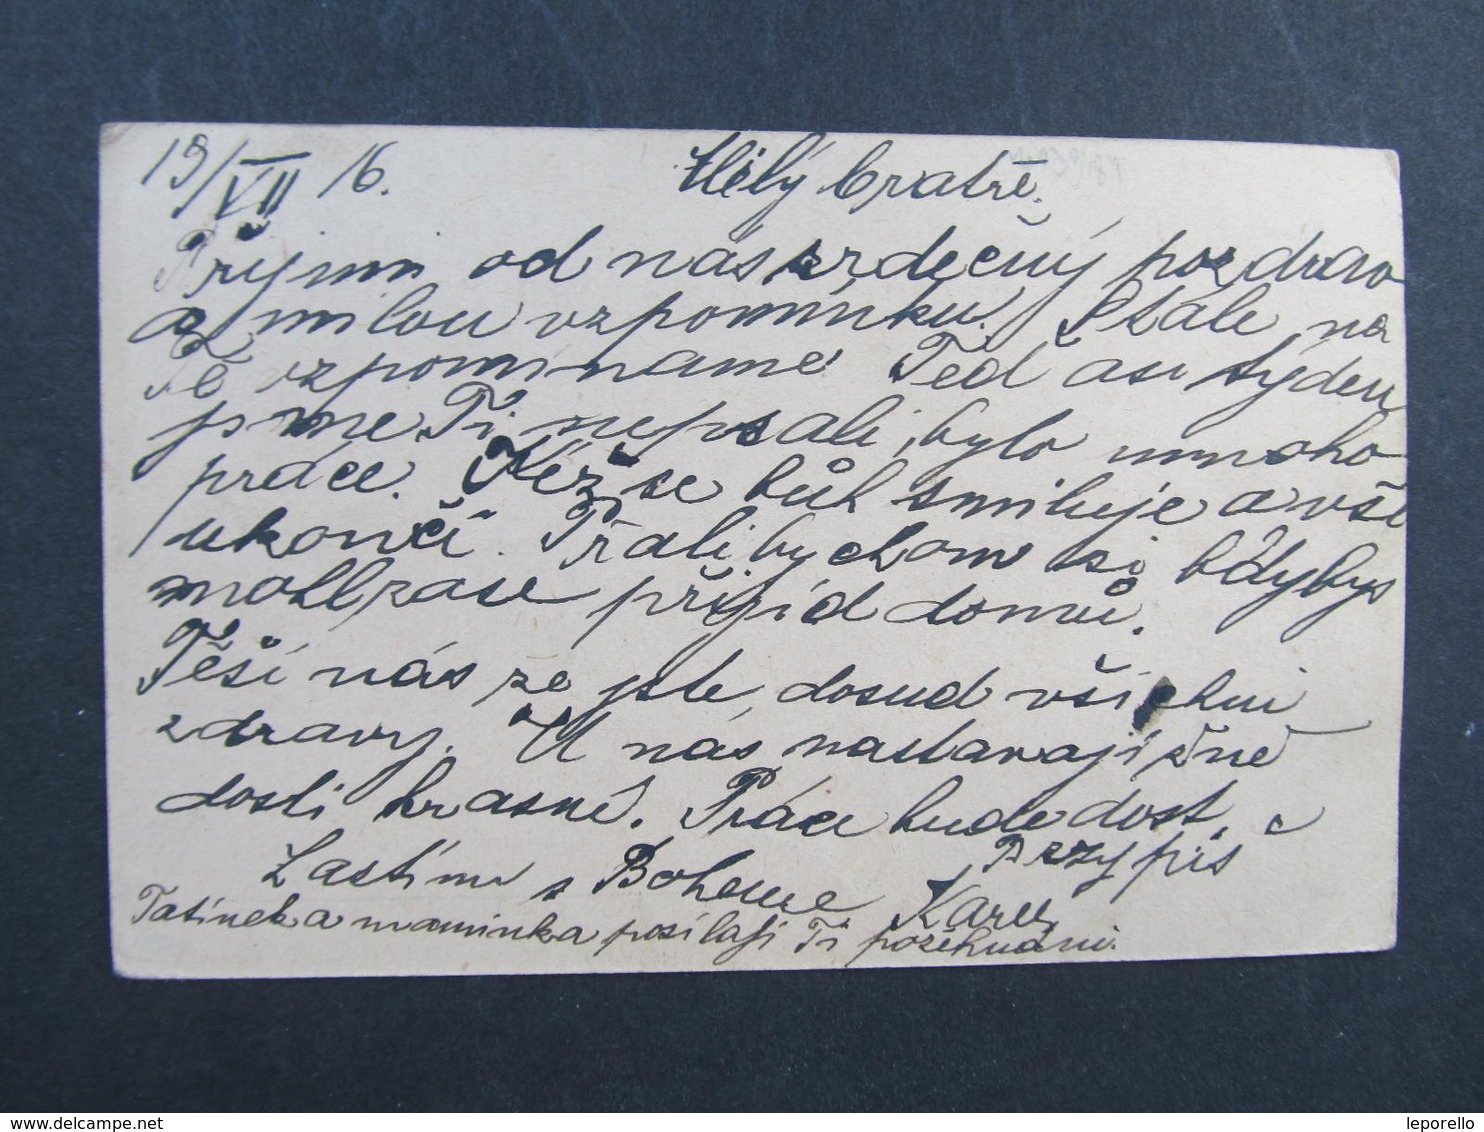 19/VII 16. Milý bratře.
Přijmi od nás srdečný pozdrav
a milou vzpomínku. Stále na
Tě vzpomínáme. Teď asi týden
jsme Ti nepsali, bylo mnoho
práce. Kéž se bůh smiluje a vše
ukončí. Přáli bychom si kdybys
mohl zase přijíd domů.
Těší nás že jste dosud všichni
zdravy. U nás nastavají žně
dosti krasné. Práce bude dost.
Brzy piš
Zastím s Bohem Karel
Tatínek a maminka posílají Ti požehnání.
leporello
delcampe.net